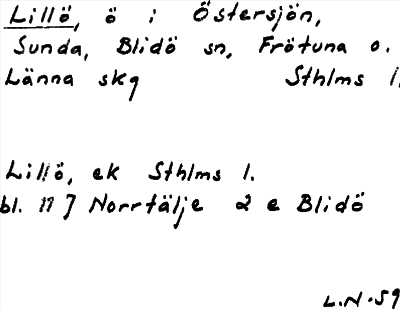 Lillö, ö i Östersjön,
Sunda, Blidö sn, Frötuna o.
Länna skg Sthlms l.
Lillö, ek Sthlms l.
bl. 11 J Norrtälje 2 e Blidö
L.N. 59